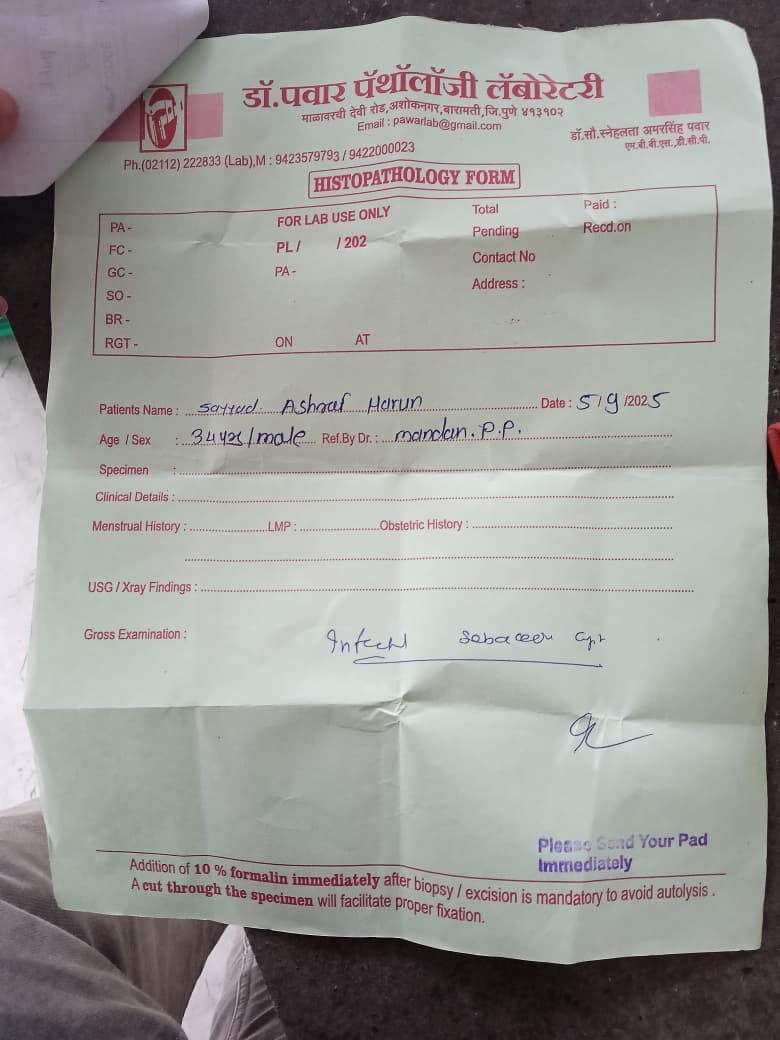 डॉ.पवार पॅथॉलॉजी लॅबोरेटरी
माळावरची देवी रोड,अशोकनगर,बारामती,जि.पुणे ४१३१०२
Email : pawarlab@gmail.com
डॉ.सौ.स्नेहलता अमरसिंह पवार
एम.बी.बी.एस.,डी.सी.पी.
Ph.(02112) 222833 (Lab),M : 9423579793 / 9422000023
HISTOPATHOLOGY FORM
PA - FOR LAB USE ONLY Total Paid :
FC - PL / / 202 Pending Recd.on
GC - PA - Contact No
SO - Address :
BR -
RGT - ON AT
Patients Name : Sayyad. Ashraf Harun Date : 5/9/2025
Age / Sex : 34yrs/male Ref.By Dr. : mandan. P.P.
Specimen :
Clinical Details :
Menstrual History : LMP : Obstetric History :
USG / Xray Findings :
Gross Examination :
Sebaceou
Please Send Your Pad
Immediately
Addition of 10 % formalin immediately after biopsy / excision is mandatory to avoid autolysis .
A cut through the specimen will facilitate proper fixation.